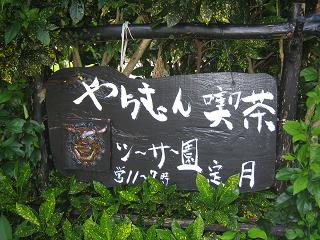 やちむん喫茶
ツーサー園
営11〜7時 定 月